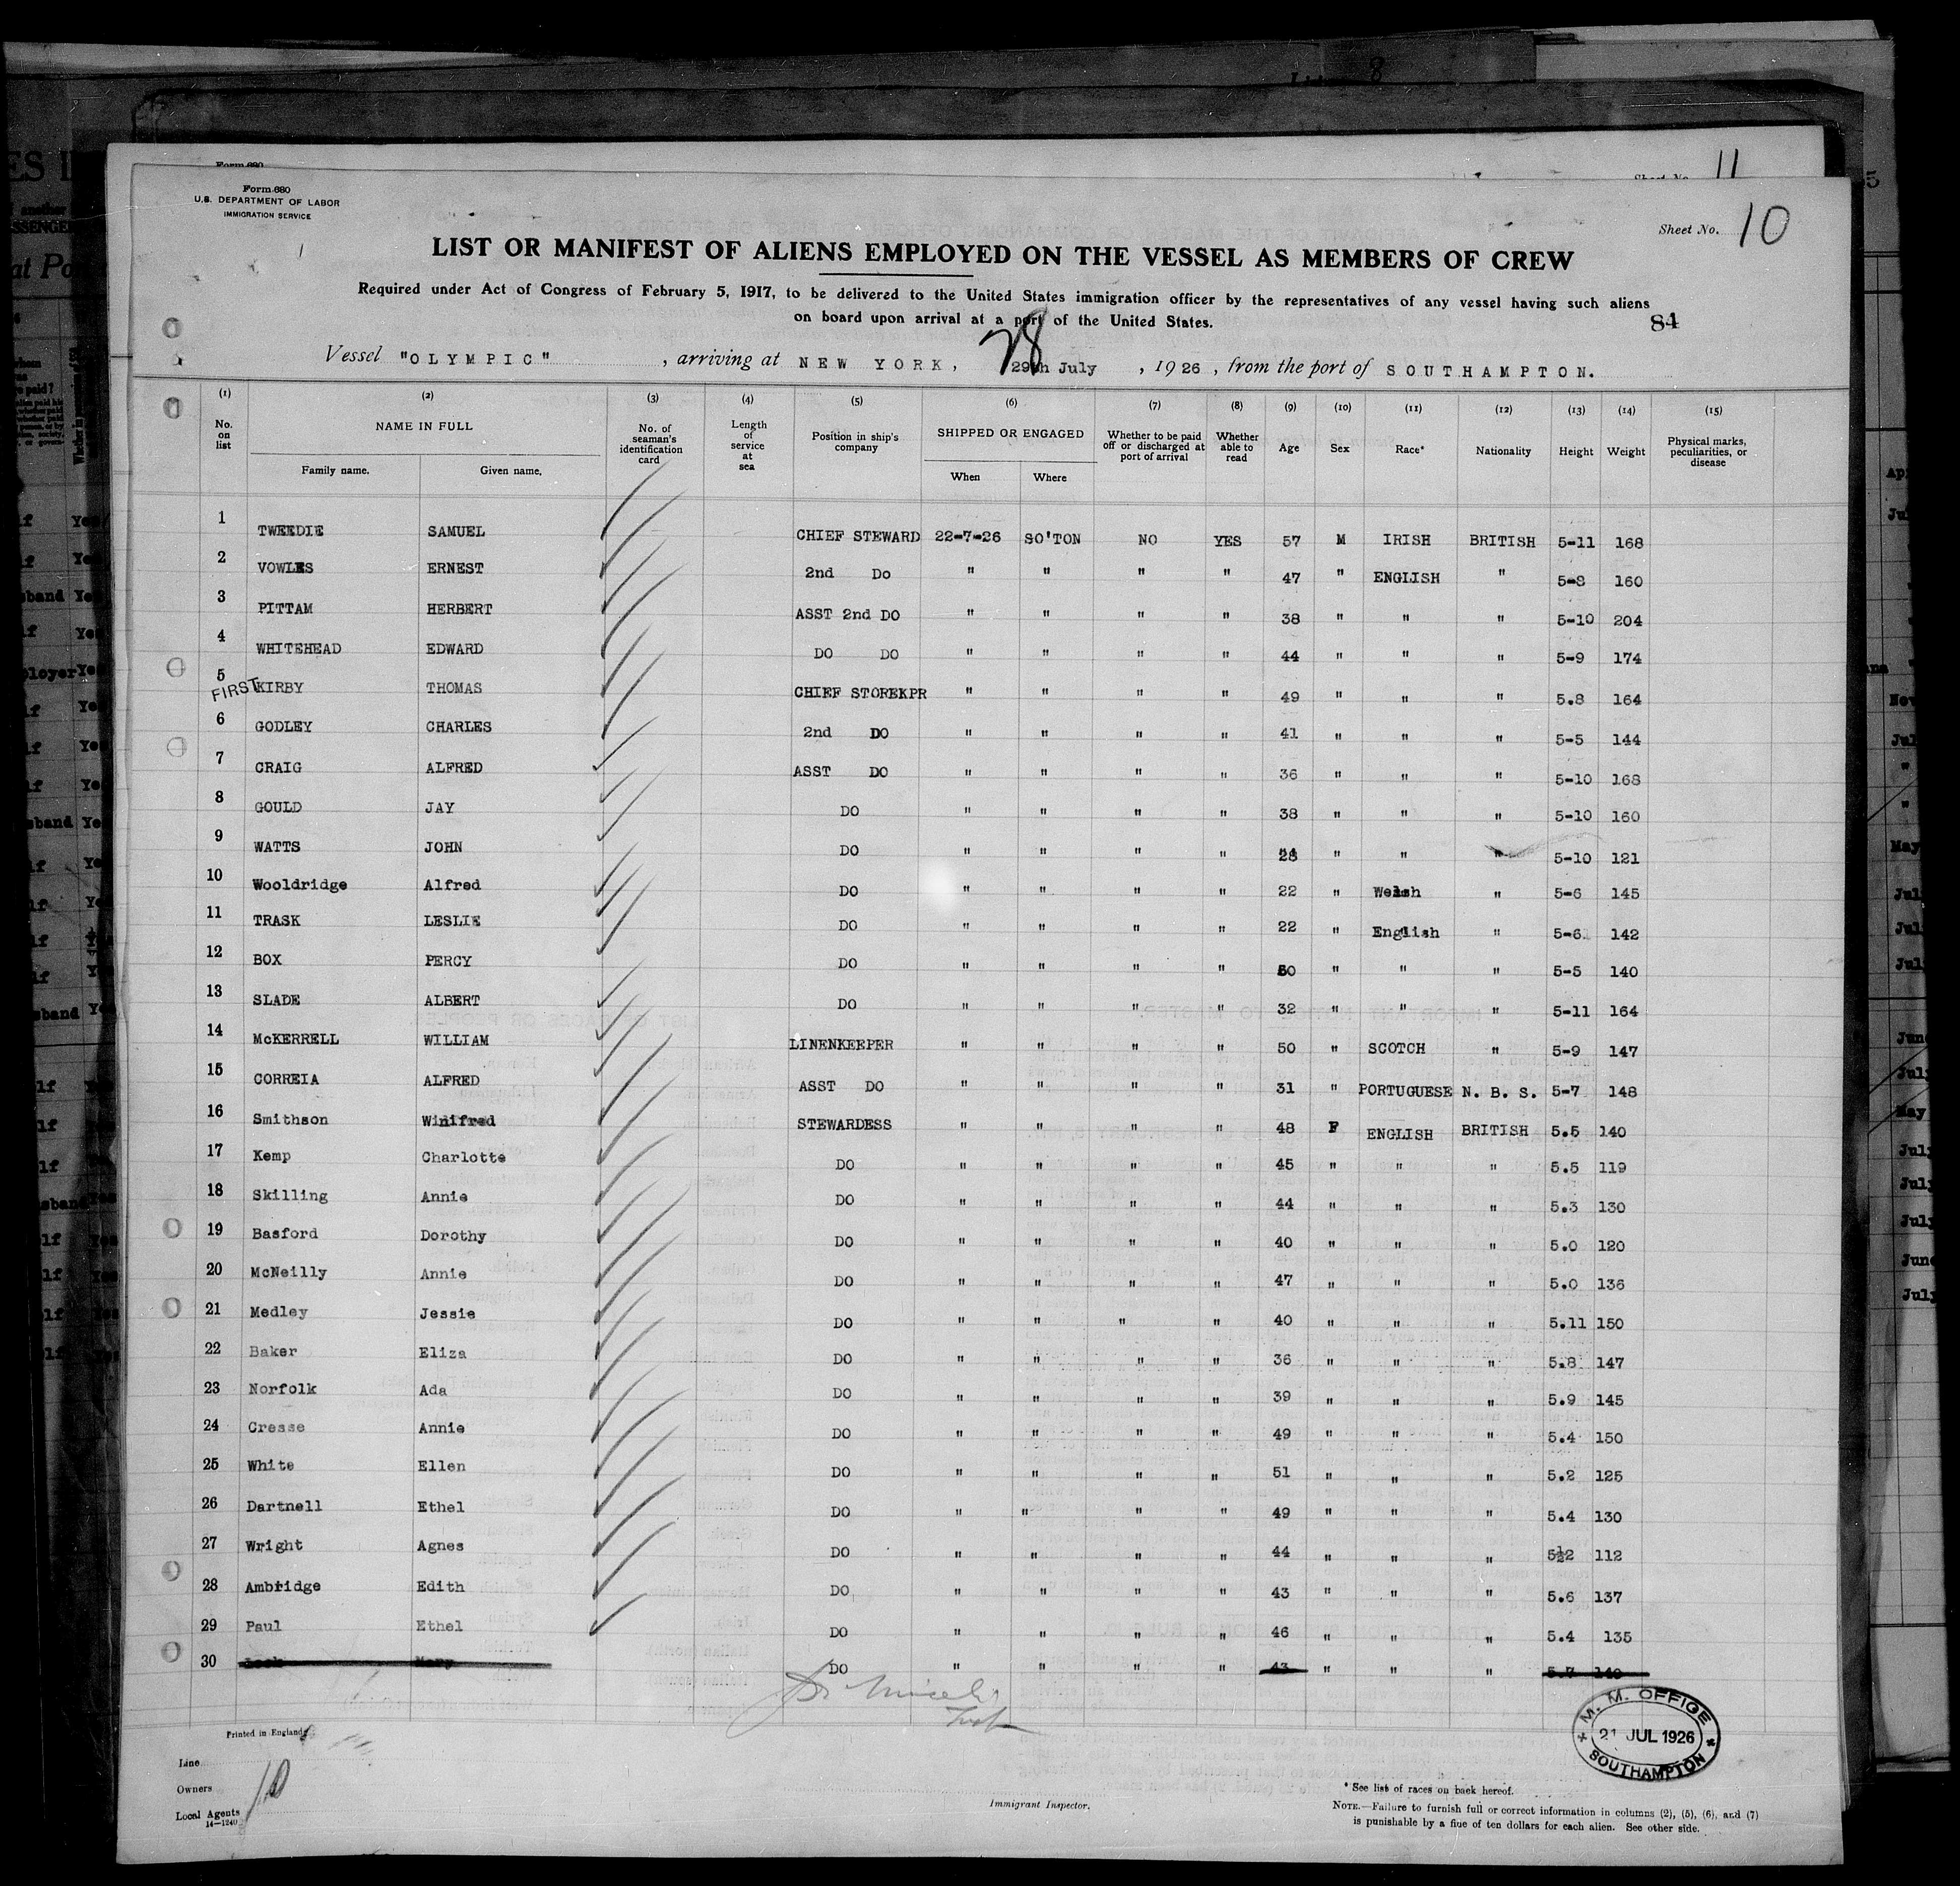 Form 680
U.S. DEPARTMENT OF LABOR
IMMIGRATION SERVICE
11
Sheet No. 10
LIST OR MANIFEST OF ALIENS EMPLOYED ON THE VESSEL AS MEMBERS OF CREW
Required under Act of Congress of February 5, 1917, to be delivered to the United States immigration officer by the representatives of any vessel having such aliens
on board upon arrival at a port of the United States.
84
28
Vessel "OLYMPIC" , arriving at NEW YORK, 29th July , 1926 , from the port of SOUTHAMPTON.
(1) (2) (3) (4) (5) (6) (7) (8) (9) (10) (11) (12) (13) (14) (15)
No. on list NAME IN FULL Family name. Given name. No. of seaman's identification card Length of service at sea Position in ship's company SHIPPED OR ENGAGED When Where Whether to be paid off or discharged at port of arrival Whether able to read Age Sex Race* Nationality Height Weight Physical marks, peculiarities, or disease
1 TWEEDIE SAMUEL CHIEF STEWARD 22-7-26 SO'TON NO YES 57 M IRISH BRITISH 5-11 168
2 VOWLES ERNEST 2nd Do " " " " 47 " ENGLISH " 5-8 160
3 PITTAM HERBERT ASST 2nd DO " " " " 38 " " " 5-10 204
4 WHITEHEAD EDWARD DO DO " " " " 44 " " " 5-9 174
5 FIRST KIRBY THOMAS CHIEF STOREKPR " " " " 49 " " " 5.8 164
6 GODLEY CHARLES 2nd DO " " " " 41 " " " 5-5 144
7 CRAIG ALFRED ASST DO " " " " 36 " " " 5-10 168
8 GOULD JAY DO " " " " 38 " " " 5-10 160
9 WATTS JOHN DO " " " " " " " 5-10 121
10 Wooldridge Alfred DO " " " " 22 " Welsh " 5-6 145
11 TRASK LESLIE DO " " " " 22 " English " 5-6 142
12 BOX PERCY DO " " " " " " " 5-5 140
13 SLADE ALBERT DO " " " " 32 " " " 5-11 164
14 McKERRELL WILLIAM LINENKEEPER " " " " 50 " SCOTCH " 5-9 147
15 CORREIA ALFRED ASST DO " " " " 31 " PORTUGUESE N. B. S. 5-7 148
16 Smithson Winifred STEWARDESS " " " " 48 F ENGLISH BRITISH 5.5 140
17 Kemp Charlotte DO " " " " 45 " " " 5.5 119
18 Skilling Annie DO " " " " 44 " " " 5.3 130
19 Basford Dorothy DO " " " " 40 " " " 5.0 120
20 McNeilly Annie DO " " " " 47 " " " 5.0 136
21 Medley Jessie DO " " " " 40 " " " 5.11 150
22 Baker Eliza DO " " " " 36 " " " 5.8 147
23 Norfolk Ada DO " " " " 39 " " " 5.9 145
24 Cresse Annie DO " " " " 49 " " " 5.4 150
25 White Ellen DO " " " " 51 " " " 5.2 125
26 Dartnell Ethel DO " " " " 49 " " " 5.4 130
27 Wright Agnes DO " " " " 44 " " " 112
28 Ambridge Edith DO " " " " 43 " " " 5.6 137
29 Paul Ethel DO " " " " 46 " " " 5.4 135
30 Mary DO " " " " 43 " " " 5.7 140
M. M. OFFICE
21 JUL 1926
SOUTHAMPTON
Printed in England
Line
Owners
Local Agents
14-1240
10
Immigrant Inspector.
* See list of races on back hereof.
NOTE.—Failure to furnish full or correct information in columns (2), (5), (6), and (7)
is punishable by a fine of ten dollars for each alien. See other side.